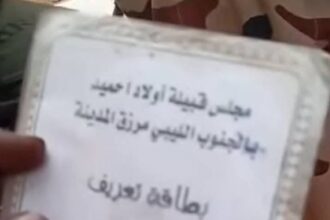 مجلس قبيلة أولاد احميد
بالجنوب الليبي مرزق المدينة
بطاقة تعريف